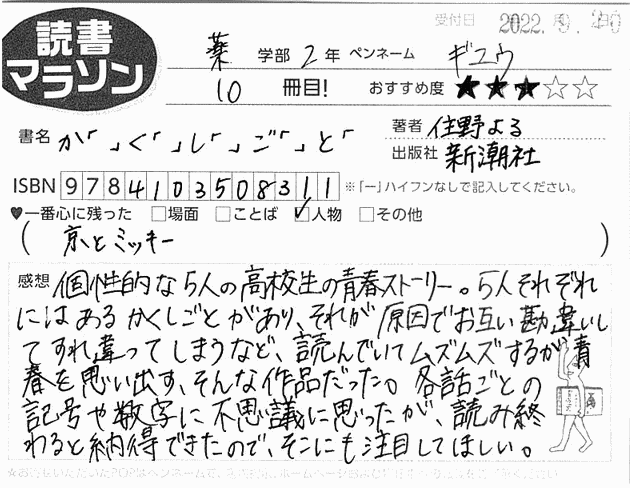 受付日 2022. 9. 20
読書
マラソン
薬 学部 2 年 ペンネーム ギユウ
10 冊目! おすすめ度 ★★★☆☆
書名 か「 」く「 」し「 」ご「 」と「
著者 住野よる
出版社 新潮社
ISBN 9784103508311 ※「ー」ハイフンなしで記入してください。
♥一番心に残った □場面 □ことば ☑人物 □その他
( 京とミッキー )
感想 個性的な5人の高校生の青春ストーリー。5人それぞれ
にはあるかくしごとがあり、それが原因でお互い勘違いし
てすれ違ってしまうなど、読んでいてムズムズするが青
春を思い出す、そんな作品だった。各話ごとの
記号や数字に不思議に思ったが、読み終
わると納得できたので、そこにも注目してほしい。